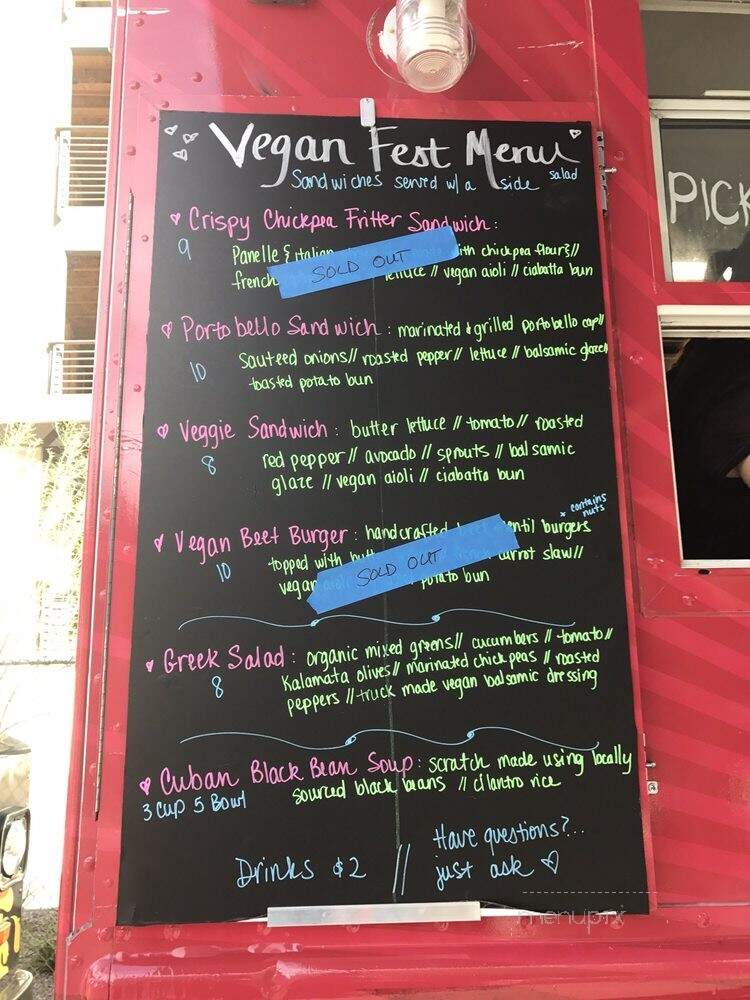 Vegan Fest Menu
Sandwiches served w/ a side salad
Crispy Chickpea Fritter Sandwich:
9 Panelle & italian with chickpea flour &//
french lettuce // vegan aioli // ciabatta bun
SOLD OUT
Portobello Sandwich: marinated & grilled portobello cap//
10 sauteed onions// roasted pepper// lettuce // balsamic glaze//
toasted potato bun
Veggie Sandwich: butter lettuce // tomato // roasted
8 red pepper// avocado // sprouts // balsamic
glaze // vegan aioli // ciabatta bun
* contains nuts
Vegan Beet Burger: handcrafted beet lentil burgers
10 topped with carrot slaw//
vegan potato bun
SOLD OUT
Greek Salad: organic mixed greens// cucumbers // tomato//
8 Kalamata olives// marinated chick peas // roasted
peppers // truck made vegan balsamic dressing
Cuban Black Bean Soup: scratch made using locally
3 cup 5 Bowl sourced black beans // cilantro rice
Drinks $2 // Have questions?..
just ask
PICK
menupix